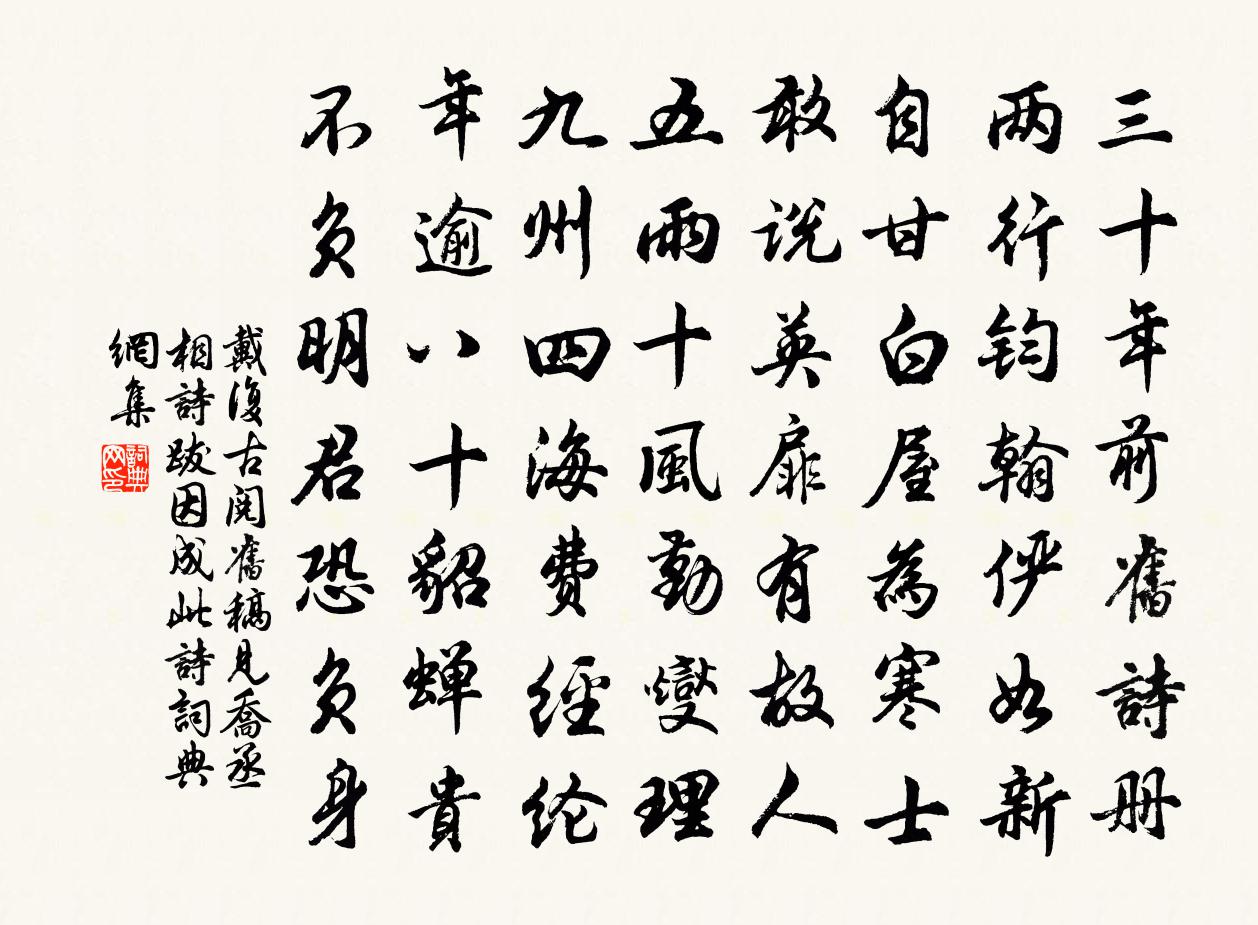 三十年前舊詩册
两行钧翰俨如新
自甘白屋為寒士
敢说英扉有故人
五雨十風勤燮理
九州四海費經纶
年逾八十貂蝉貴
不负明君恐负身
戴復古閱舊稿見喬丞
相詩跋因成此詩詞典
網集
詞典
网印